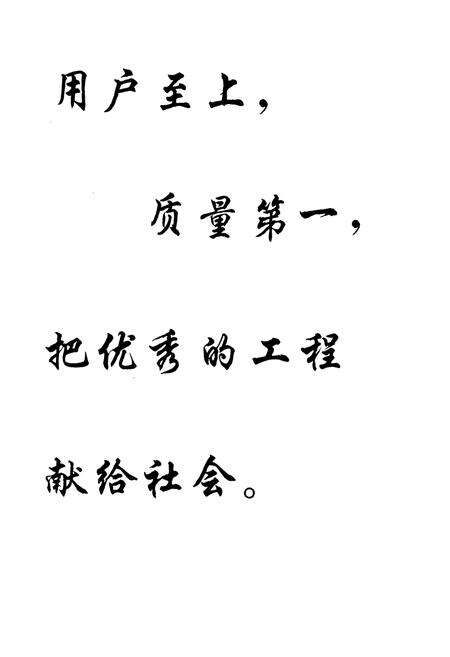 用户至上，
质量第一，
把优秀的工程
献给社会。